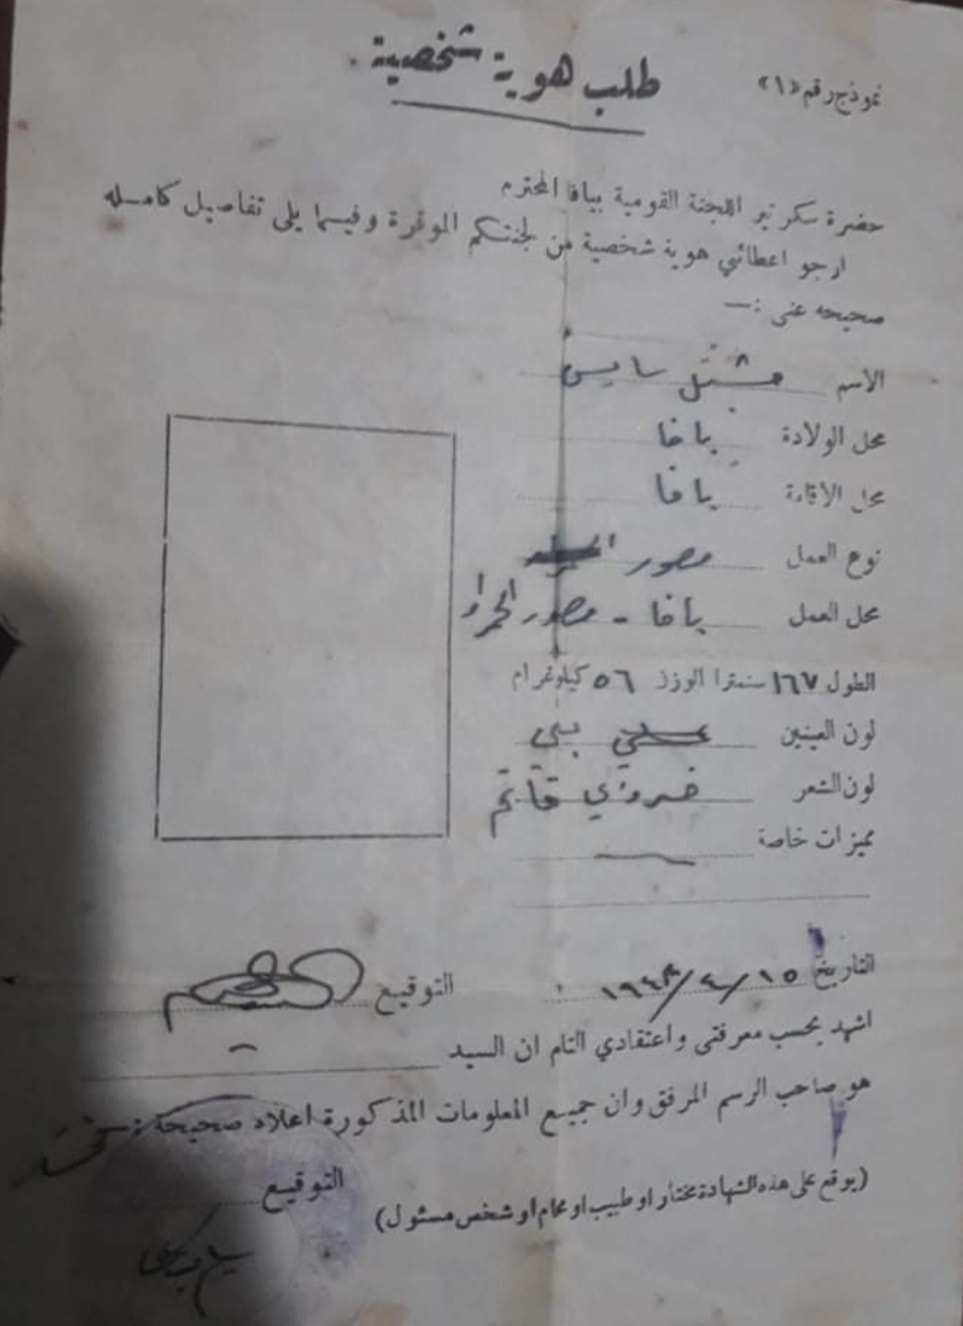 نموذج رقم «١»
طلب هوية شخصية
حضرة سكرتير اللجنة القومية بيافا المحترم
ارجو اعطائي هوية شخصية من لجنتكم الموقرة وفيما يلي تفاصيل كامله
صحيحه عنى :—
الاسم سايس
محل الولادة يافا
محل الاقامة يافا
نوع العمل مصور
محل العمل يافا - مصور الحمراء
الطول ١٦٧ سنمترا الوزن ٥٦ كيلوغرام
لون العينين عسلي بني
لون الشعر قاتم
مميزات خاصة —
التاريخ ١٥/٤/١٩٤٨
التوقيع
اشهد بحسب معرفتى واعتقادي التام ان السيد
هو صاحب الرسم المرفق وان جميع المعلومات المذكورة اعلاه صحيحة
التوقيع
(يوقع على هذه الشهادة مختار او طبيب او محام او شخص مسئول)